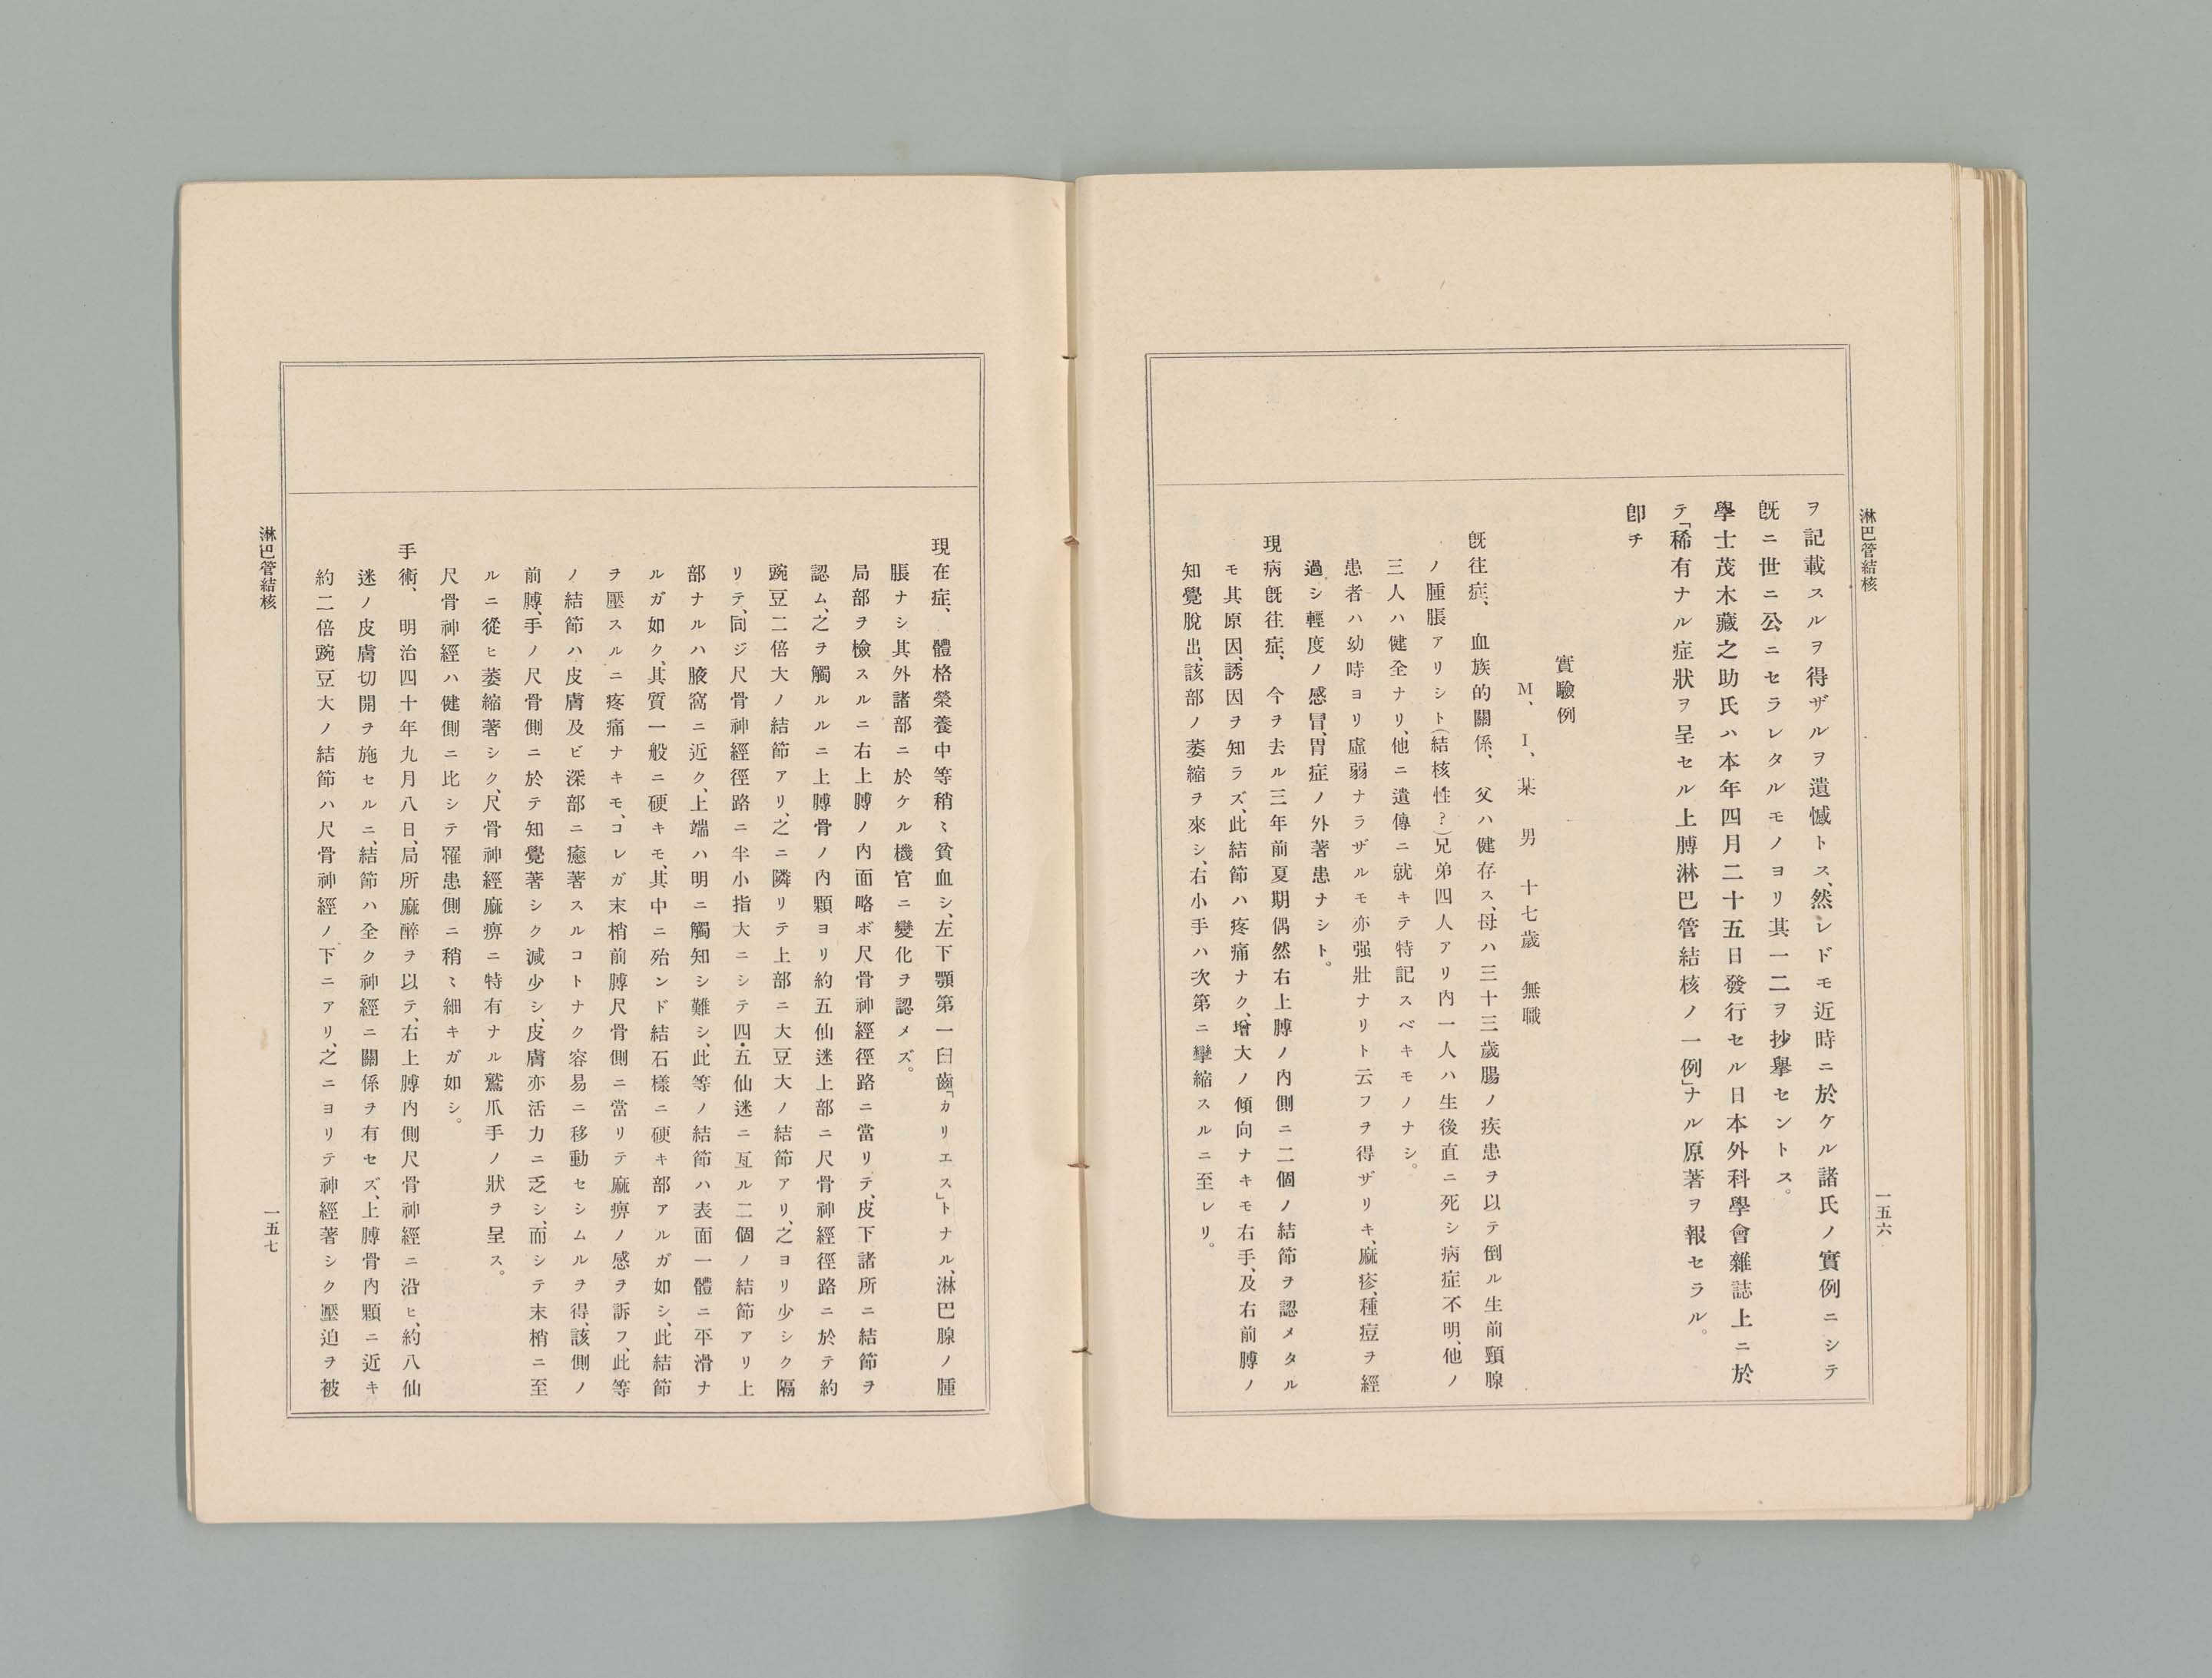 淋巴管結核
一五六
ヲ記載スルヲ得ザルヲ遺憾トス、然レドモ近時ニ於ケル諸氏ノ實例ニシテ
旣ニ世ニ公ニセラレタルモノヨリ其一二ヲ抄擧セントス。
學士茂木藏之助氏ハ本年四月二十五日發行セル日本外科學會雜誌上ニ於
テ「稀有ナル症狀ヲ呈セル上膊淋巴管結核ノ一例」ナル原著ヲ報セラル。
卽チ
實驗例
M、I、某　男　十七歲　無職
旣往症、血族的關係、父ハ健存ス、母ハ三十三歲腸ノ疾患ヲ以テ倒ル生前頸腺
ノ腫脹アリシト(結核性？)兄弟四人アリ內一人ハ生後直ニ死シ病症不明、他ノ
三人ハ健全ナリ、他ニ遺傳ニ就キテ特記スベキモノナシ。
患者ハ幼時ヨリ虛弱ナラザルモ亦强壯ナリト云フヲ得ザリキ、麻疹、種痘ヲ經
過シ輕度ノ感冒、胃症ノ外著患ナシト。
現病旣往症、今ヲ去ル三年前夏期偶然右上膊ノ內側ニ二個ノ結節ヲ認メタル
モ其原因、誘因ヲ知ラズ、此結節ハ疼痛ナク、增大ノ傾向ナキモ右手、及右前膊ノ
知覺脫出、該部ノ萎縮ヲ來シ、右小手ハ次第ニ攣縮スルニ至レリ。
現在症、體格榮養中等稍〻貧血シ、左下顎第一臼齒「カリエス」トナル、淋巴腺ノ腫
脹ナシ其外諸部ニ於ケル機官ニ變化ヲ認メズ。
局部ヲ檢スルニ右上膊ノ內面略ボ尺骨神經徑路ニ當リテ、皮下諸所ニ結節ヲ
認ム、之ヲ觸ルルニ上膊骨ノ內顆ヨリ約五仙迷上部ニ尺骨神經徑路ニ於テ約
豌豆二倍大ノ結節アリ、之ニ隣リテ上部ニ大豆大ノ結節アリ、之ヨリ少シク隔
リテ、同ジ尺骨神經徑路ニ半小指大ニシテ四・五仙迷ニ亙ル二個ノ結節アリ上
部ナルハ腋窩ニ近ク、上端ハ明ニ觸知シ難シ、此等ノ結節ハ表面一體ニ平滑ナ
ルガ如ク、其質一般ニ硬キモ、其中ニ殆ンド結石樣ニ硬キ部アルガ如シ、此結節
ヲ壓スルニ疼痛ナキモ、コレガ末梢前膊尺骨側ニ當リテ麻痹ノ感ヲ訴フ、此等
ノ結節ハ皮膚及ビ深部ニ癒著スルコトナク容易ニ移動セシムルヲ得、該側ノ
前膊、手ノ尺骨側ニ於テ知覺著シク減少シ、皮膚亦活力ニ乏シ、而シテ末梢ニ至
ルニ從ヒ萎縮著シク、尺骨神經麻痹ニ特有ナル鷲爪手ノ狀ヲ呈ス。
尺骨神經ハ健側ニ比シテ罹患側ニ稍〻細キガ如シ。
手術、明治四十年九月八日、局所麻醉ヲ以テ、右上膊內側尺骨神經ニ沿ヒ、約八仙
迷ノ皮膚切開ヲ施セルニ、結節ハ全ク神經ニ關係ヲ有セズ、上膊骨內顆ニ近キ
約二倍豌豆大ノ結節ハ尺骨神經ノ下ニアリ、之ニヨリテ神經著シク壓迫ヲ被
淋巴管結核
一五七